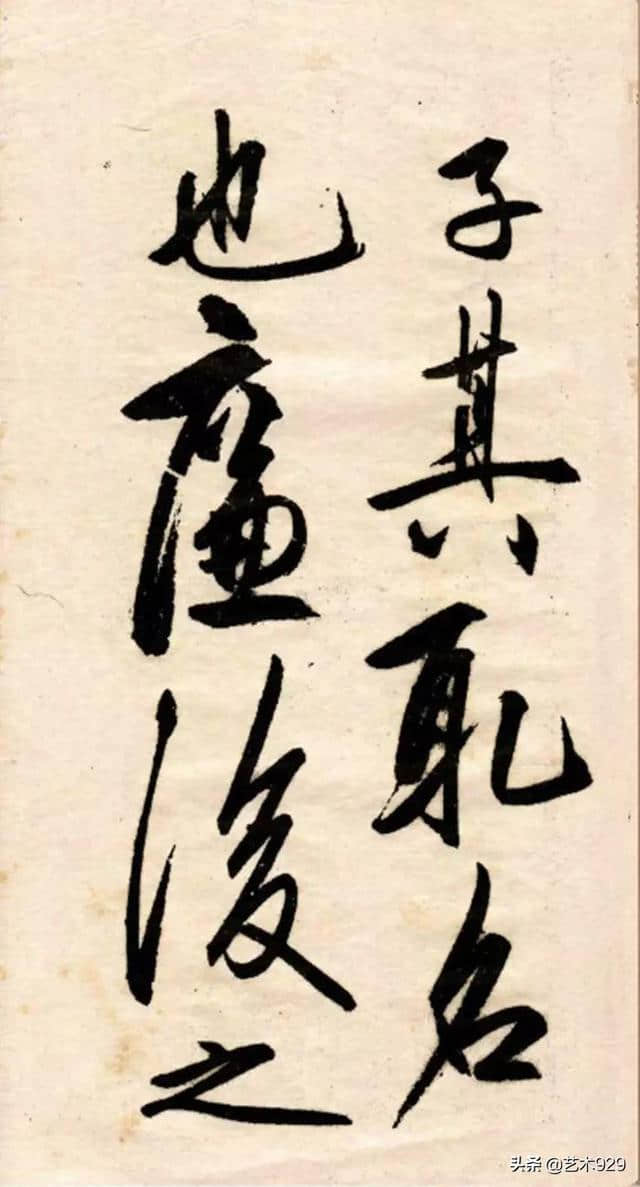 子其取名
也廉後之
头条 @艺术929